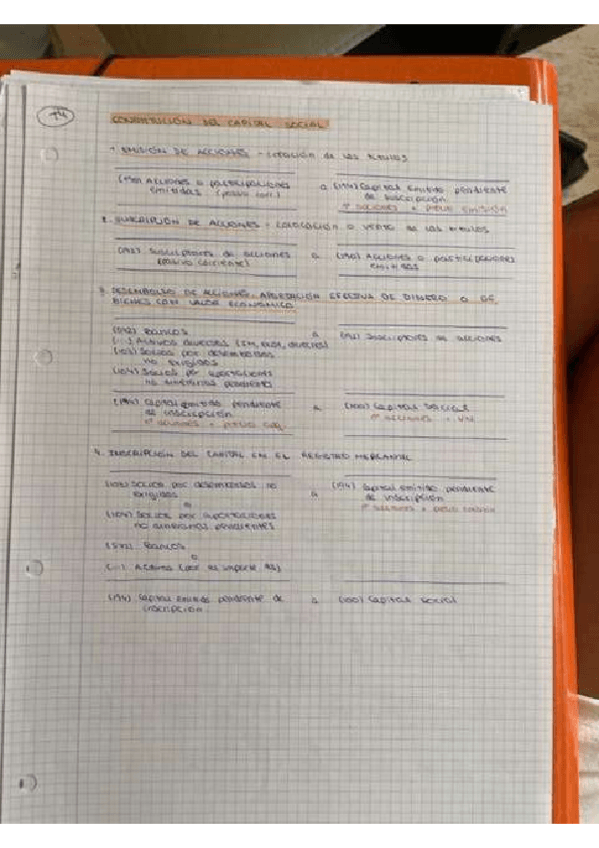 T4
CONSTITUCIÓN DEL CAPITAL SOCIAL
1. EMISIÓN DE ACCIONES - creación de los títulos
(190) ACCIONES o participaciones a (194) Capital emitido pendiente
emitidas (pasivo corr.) de inscripción
nº acciones x precio emisión
2. SUSCRIPCIÓN DE ACCIONES - COLOCACIÓN o venta de los títulos
(192) Suscriptores de acciones a (190) ACCIONES o participaciones
(pasivo corriente) emitidas
3. DESEMBOLSO DE ACCIONES. APORTACIÓN EFECTIVA DE DINERO o DE
BIENES CON VALOR ECONÓMICO
(572) Bancos a (192) Suscriptores de acciones
(103) Socios por desembolsos
no exigidos
(104) Socios por aportaciones
no dinerarias pendientes
(194) Capital emitido pendiente a (100) Capital Social
de inscripción nº acciones x VN
nº acciones x precio
4. INSCRIPCIÓN DEL CAPITAL EN EL REGISTRO MERCANTIL
(103) Socios por desembolsos no a (194) Capital emitido pendiente
exigidos de inscripción
o nº acciones x precio emisión
(104) Socios por aportaciones
no dinerarias pendientes
(572) Bancos
o
(194) Capital emitido pendiente de a (100) Capital social
inscripción